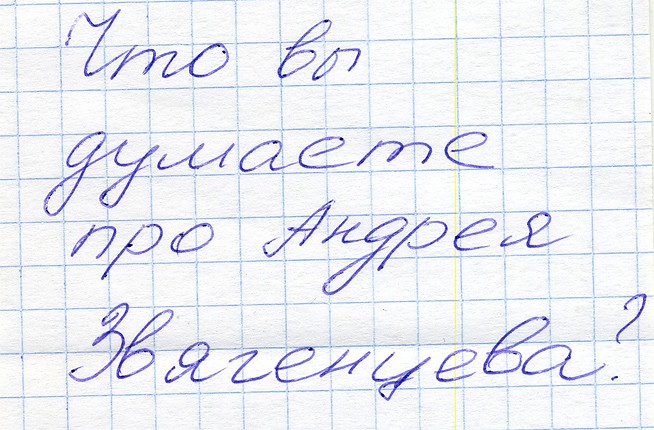 Что вы
думаете
про Андрея
Звягенцева?